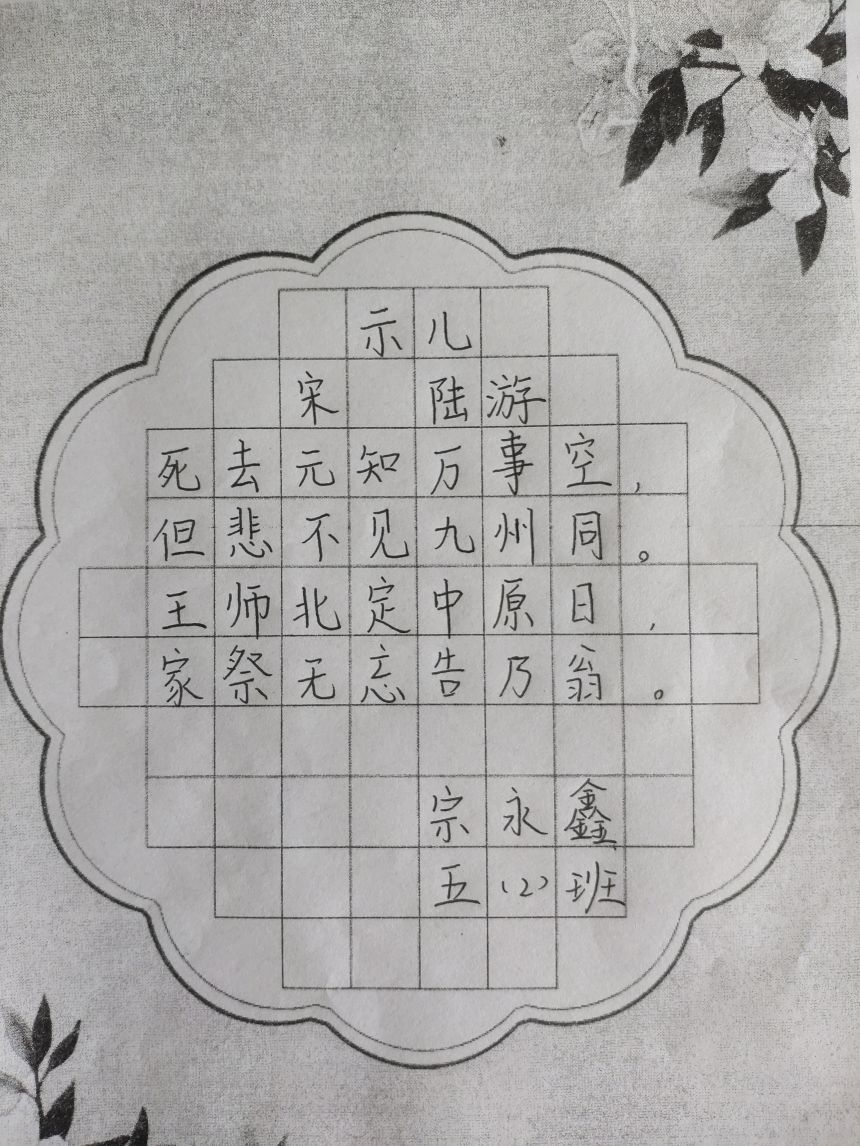 示儿
宋 陆游
死去元知万事空，
但悲不见九州同。
王师北定中原日，
家祭无忘告乃翁。
宗永鑫
五(2)班